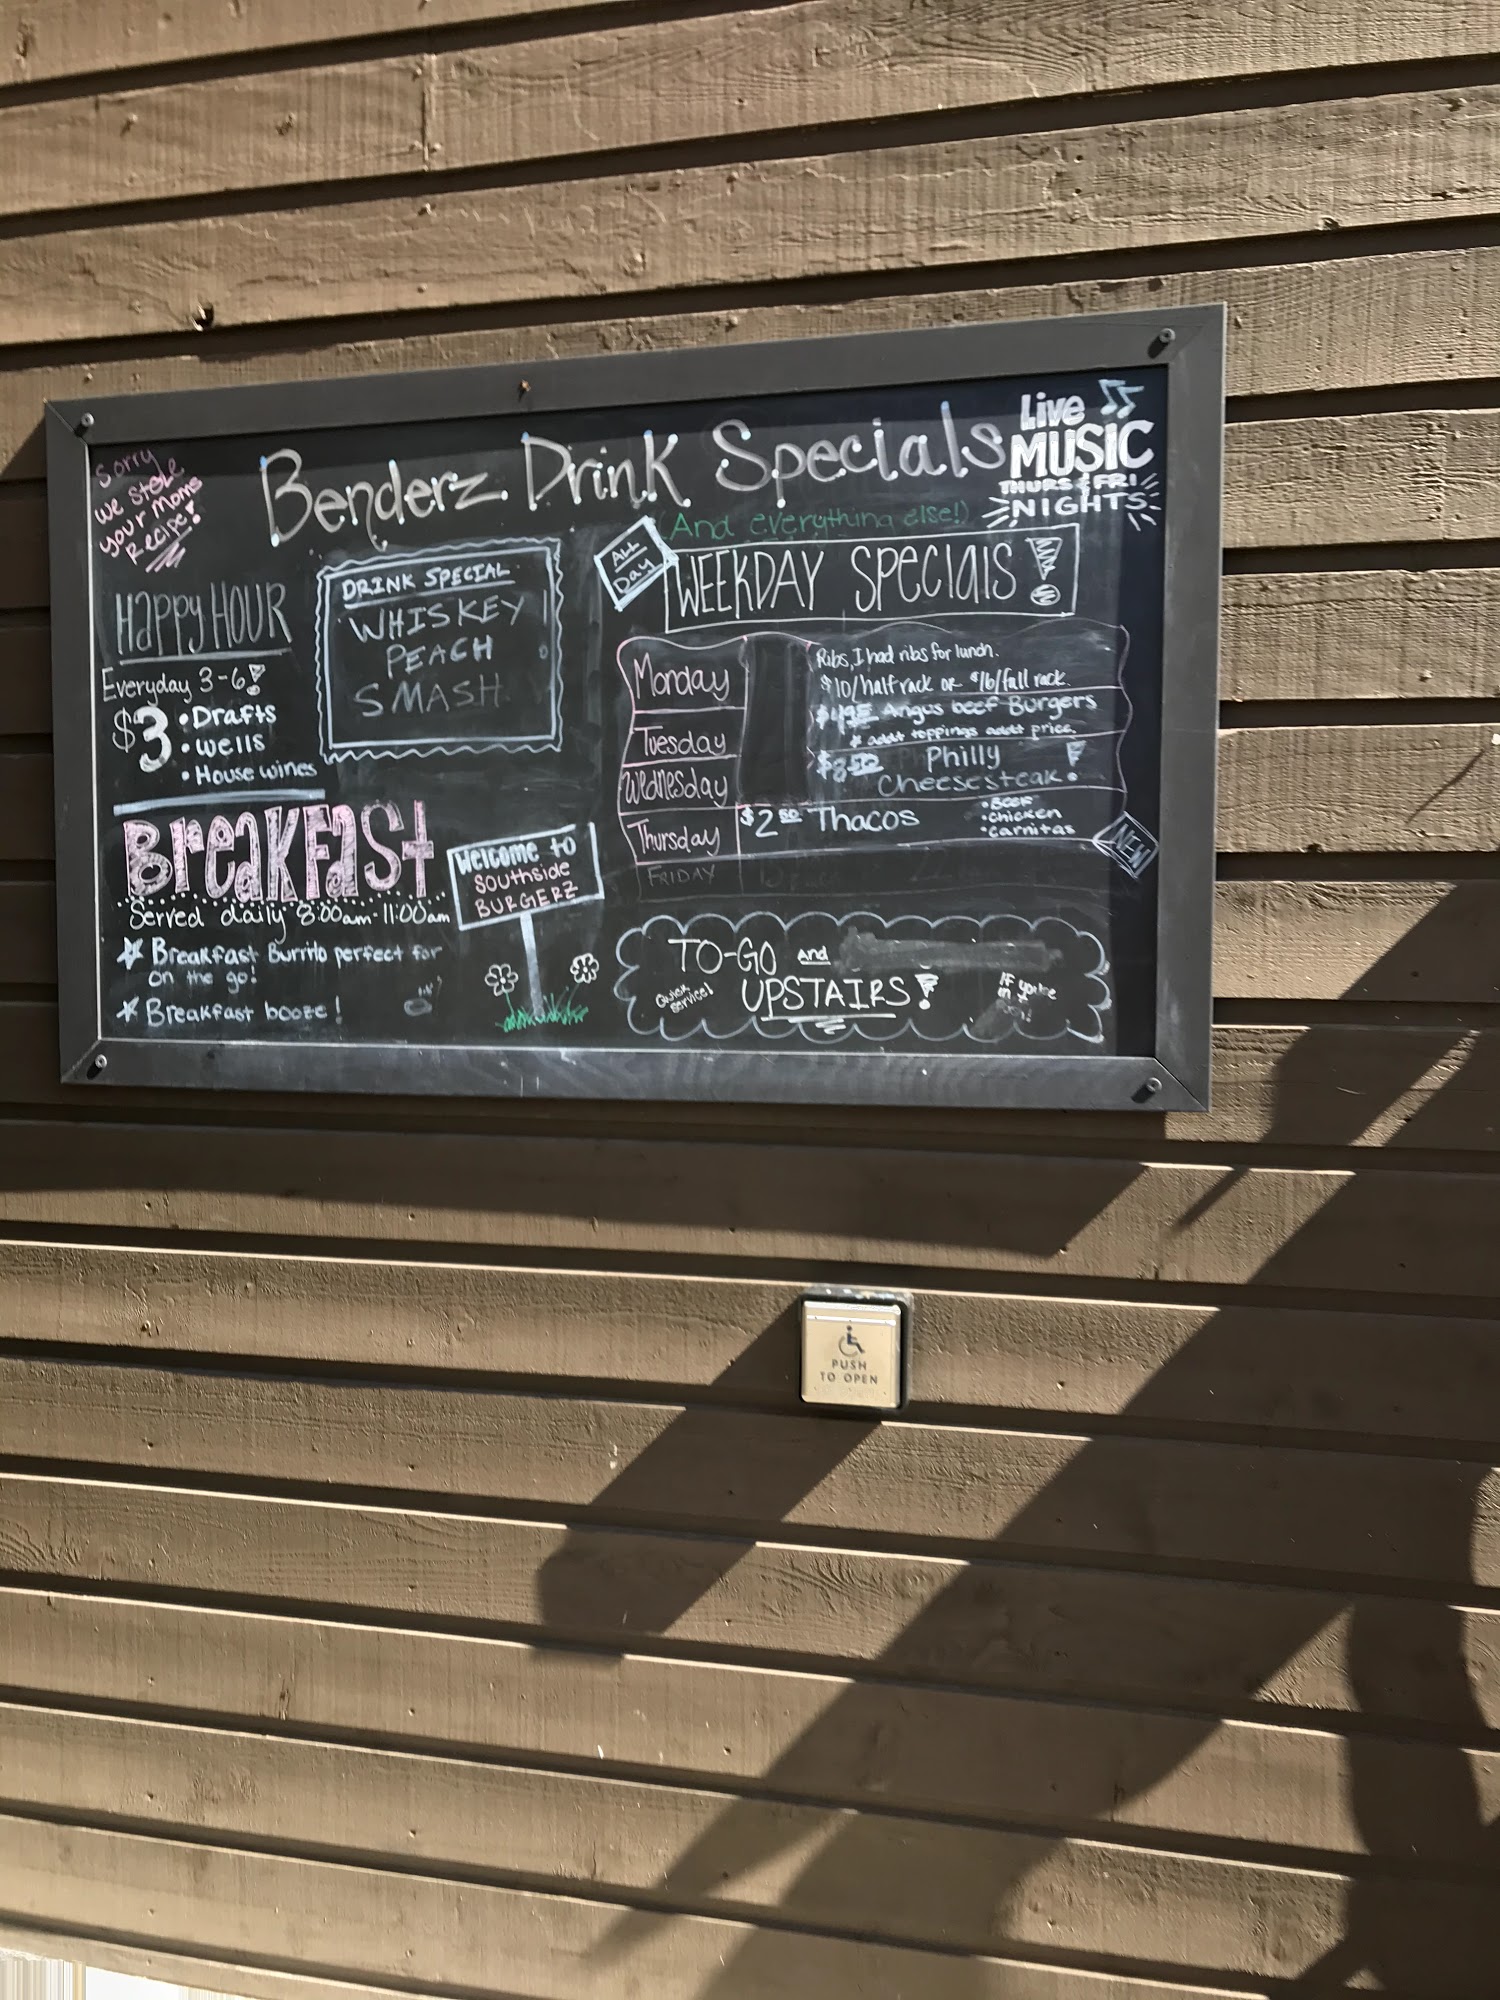 Sorry
we stole
your moms
Recipe!
Benderz Drink Specials
(And everything else!)
Live
MUSIC
THURS & FRI
NIGHTS
HAPPY HOUR
Everyday 3-6!
$3 • Drafts
• wells
• House wines
DRINK SPECIAL
WHISKEY
PEACH
SMASH
BREAKFAST
Served daily 8:00am-11:00am
Breakfast Burrito perfect for
on the go!
Breakfast booze!
Welcome to
Southside
BURGERZ
ALL
Day
WEEKDAY SPECIALS!
Monday Ribs, I had ribs for lunch.
$10/half rack or $16/full rack
Tuesday $4.95 Angus beef Burgers
* addt toppings addt price.
Wednesday $8.50 Philly
Cheesesteak.
Thursday $2.50 Thacos
• BEEF
• chicken
• carnitas
NEW
FRIDAY
TO-GO and
UPSTAIRS!
Quick
service!
IF you're
in a